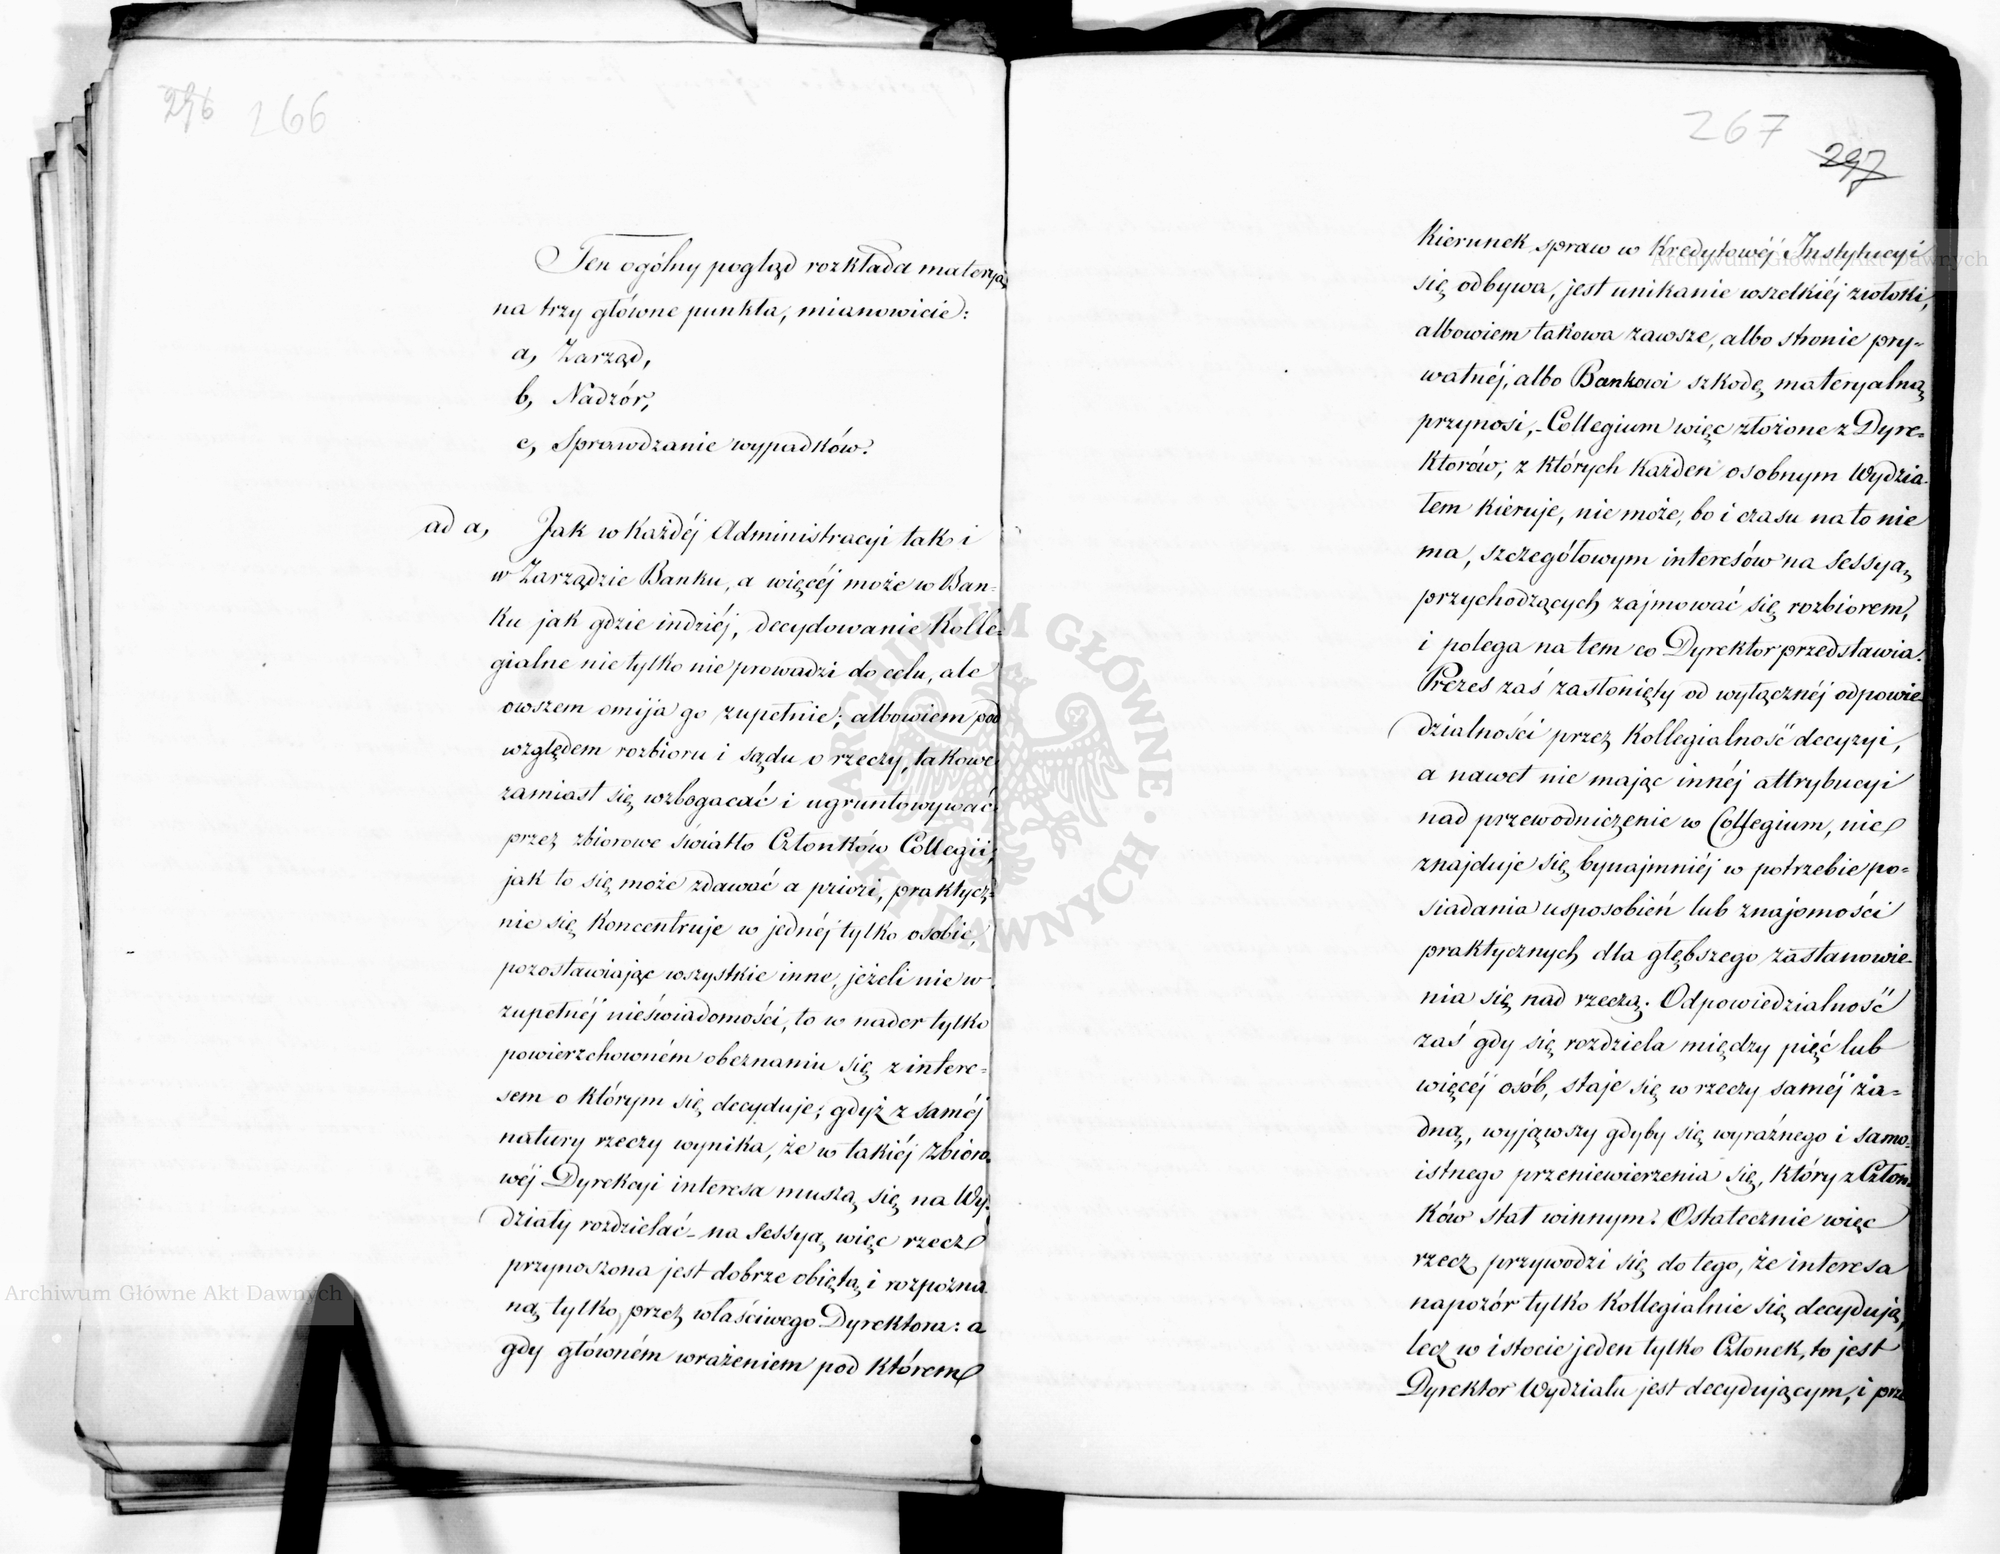 296 266
Ten ogólny pogląd rozkłada materyą
na trzy główne punkta, mianowicie:
a, Zarząd,
b, Nadzór,
c, Sprawdzanie wypadków.
ad a, Jak w każdéj Administracyi tak i
w Zarządzie Banku, a więcéj może w Ban-
ku jak gdzie indziéj, decydowanie Kolle-
gialne nie tylko nie prowadzi do celu, ale
owszem omija go zupełnie; albowiem pod
względem rozbioru i sądu o rzeczy, takowe
zamiast się wzbogacać i ugruntowywać
przez zbiorowe światło Członków Collegii,
jak to się może zdawać a priori, praktycz-
nie się koncentruje w jednéj tylko osobie,
pozostawiając wszystkie inne, jeżeli nie w
zupełnéj nieświadomości, to w nader tylko
powierzchowném obeznaniu się z intere-
sem o którym się decyduje; gdyż z saméj
natury rzeczy wynika, że w takiéj zbioro-
wéj Dyrekcyi interesa muszą się na Wy-
działy rozdzielać - na sessyą więc rzecz
przynoszona jest dobrze objętą i rozpozna-
ną tylko przez właściwego Dyrektora: a
gdy główném wrażeniem pod którem
267
297
Kierunek spraw w Kredytowéj Instytucyi
się odbywa, jest unikanie wszelkiéj zwłoki,
albowiem takowa zawsze, albo stronie pry-
watnéj, albo Bankowi szkodę materyalną
przynosi, - Collegium więc złożone z Dyre-
ktorów, z których każden osobnym Wydzia-
łem kieruje, nie może, bo i czasu na to nie
ma, szczegółowym interesów na sessyą
przychodzących zajmować się rozbiorem,
i polega na tem co Dyrektor przedstawia.
Prezes zaś zasłonięty od wyłącznéj odpowie
dzialności przez Kollegialność decyzyi,
a nawet nie mając innéj attrybucyi
nad przewodniczenie w Collegium, nie
znajduje się bynajmniéj w potrzebie po-
siadania usposobień lub znajomości
praktycznych dla głębszego zastanowie-
nia się nad rzeczą. Odpowiedzialność
zaś gdy się rozdziela między pięć lub
więcéj osób, staje się w rzeczy saméj ża-
dną, wyjąwszy gdyby się wyraźnego i samo-
istnego przeniewierzenia się, który z Człon-
ków stał winnym. Ostatecznie więc
rzecz przywodzi się do tego, że interesa
napozór tylko Kollegialnie się decydują,
lecz w istocie jeden tylko Członek, to jest
Dyrektor Wydziału jest decydującym, i prze
Archiwum Główne Akt Dawnych
Archiwum Główne Akt Dawnych
ARCHIWUM GŁÓWNE AKT DAWNYCH